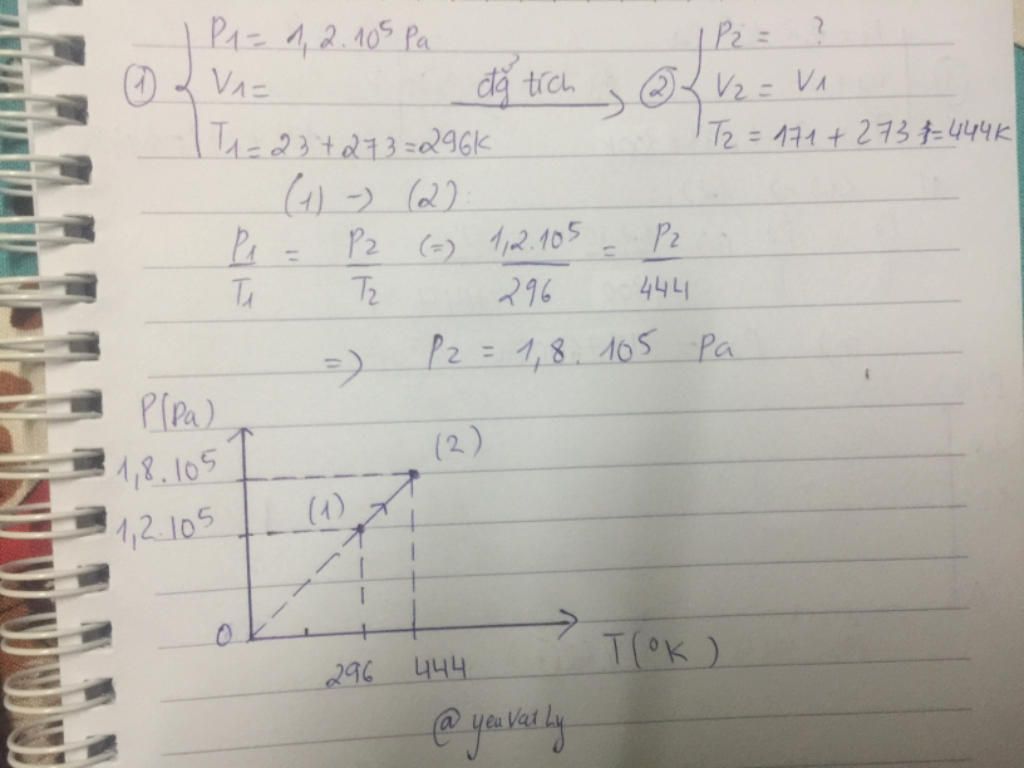 ① { P1 = 1,2.10⁵ Pa
V1 =
T1 = 23 + 273 = 296K
đg tích
② { P2 = ?
V2 = V1
T2 = 171 + 273 = 444K
(1) → (2):
P1/T1 = P2/T2 (=) 1,2.10⁵/296 = P2/444
=) P2 = 1,8.10⁵ Pa
P(Pa)
1,8.10⁵
(2)
1,2.10⁵
(1)
0
296 444
T(°K)
@yeuvatly